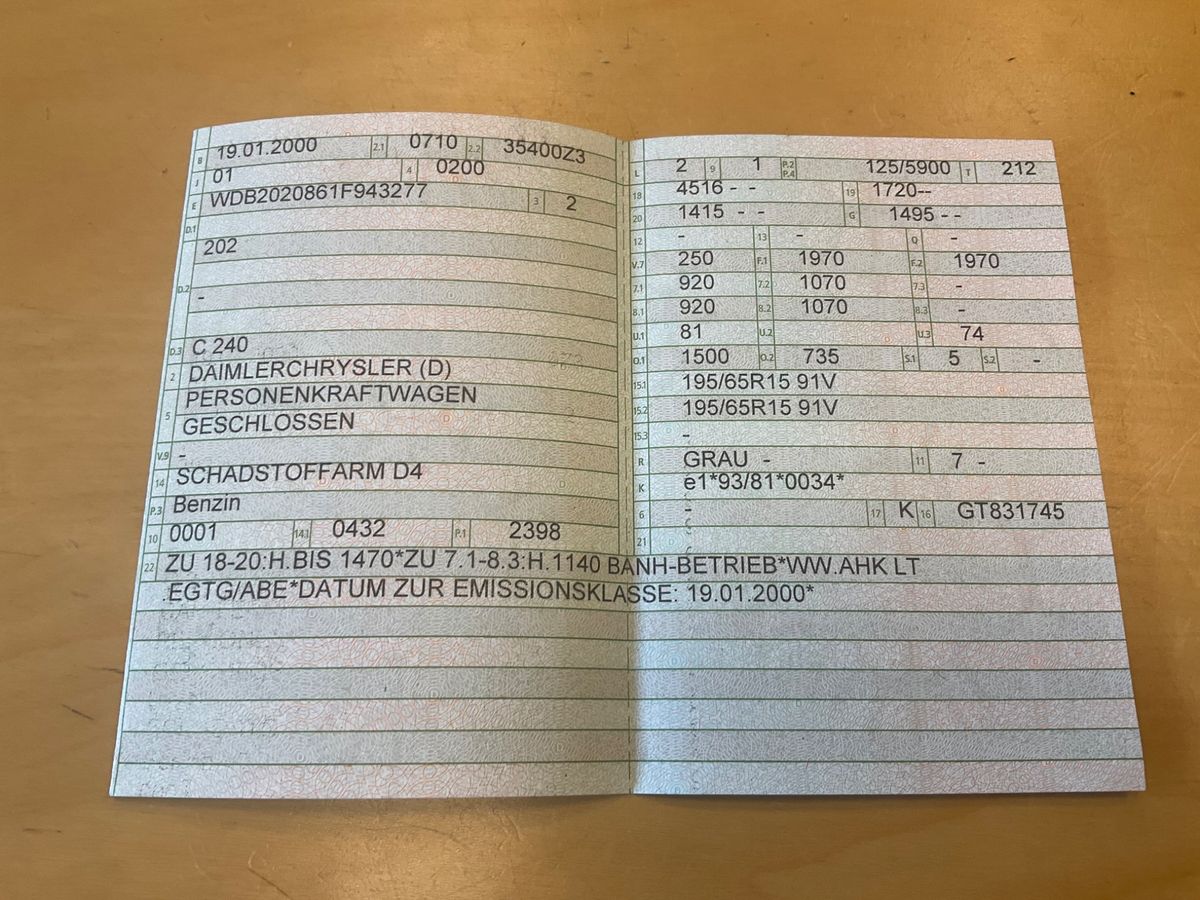 B 19.01.2000 2.1 0710 2.2 35400Z3
J 01 4 0200
E WDB2020861F943277 3 2
D.1
202
D.2
-
D.3 C 240
2 DAIMLERCHRYSLER (D)
5 PERSONENKRAFTWAGEN
GESCHLOSSEN
V.9 -
14 SCHADSTOFFARM D4
P.3 Benzin
10 0001 14.1 0432 P.1 2398
L 2 9 1 P.2 P.4 125/5900 T 212
18 4516 - - 19 1720--
20 1415 - - G 1495 - -
12 - 13 - Q -
V.7 250 F.1 1970 F.2 1970
7.1 920 7.2 1070 7.3 -
8.1 920 8.2 1070 8.3 -
U.1 81 U.2 U.3 74
O.1 1500 O.2 735 S.1 5 S.2 -
15.1 195/65R15 91V
15.2 195/65R15 91V
15.3 -
R GRAU - 11 7 -
K e1*93/81*0034*
6 - 17 K 16 GT831745
21 -
22 ZU 18-20:H.BIS 1470*ZU 7.1-8.3:H.1140 BANH-BETRIEB*WW.AHK LT
.EGTG/ABE*DATUM ZUR EMISSIONSKLASSE: 19.01.2000*